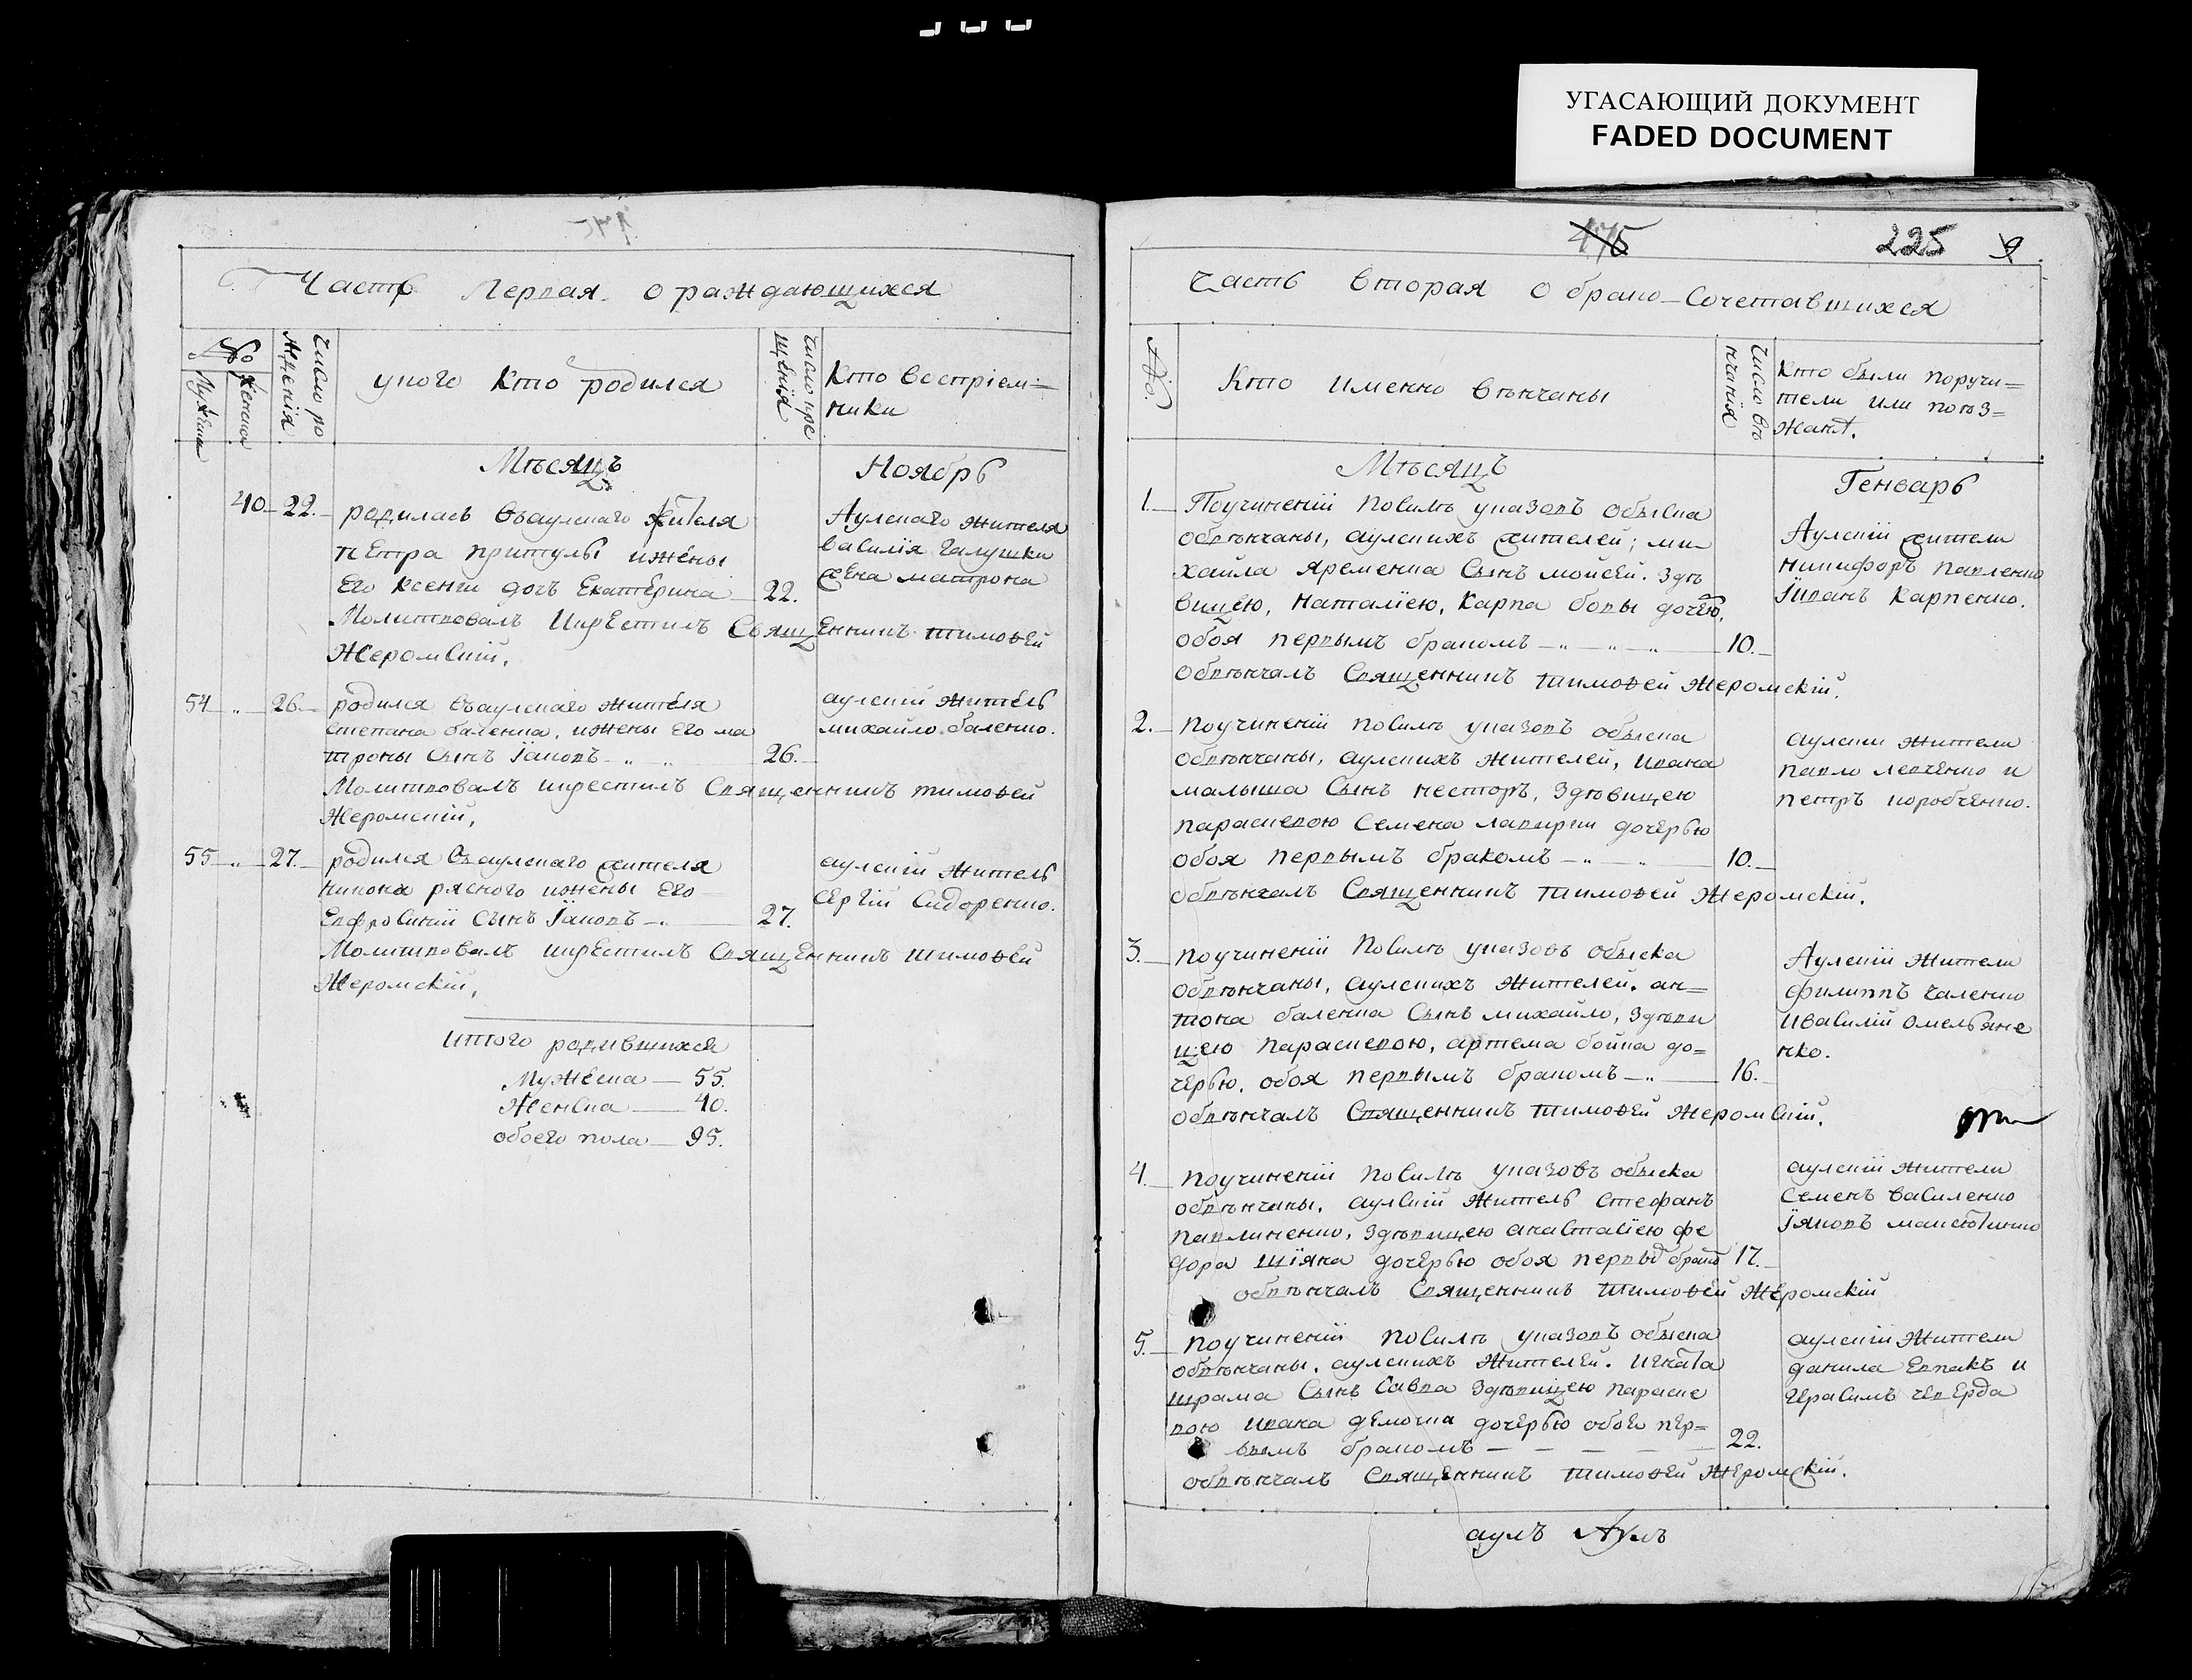 УГАСАЮЩИЙ ДОКУМЕНТ
FADED DOCUMENT
Часть Первая о раждающихся
№
Мужеска
Женска
Число рожденія
уного Кто родился
Число крещенія
Кто воспріем=
ники
Мѣсяцъ
Ноябрь
40 22. родилась въаулскаго жителя
петра притулы ижены
Его Ксенги дочъ Екатерина 22.
Молитвовалъ икрестилъ Священникъ тимоѳей
Жеромскій.
Аулскаго жителя
василія Галушки
жена матрона
54 26. родился въаулскаго жителя
степана баленка, ижены Его ма
троны Сынъ Іаковъ 26.
Молитвовалъ икрестилъ Священникъ тимоѳей
Жеромскій,
аулскій житель
михайло баленко.
55 27. родился въаулскаго жителя
никона рясного ижены Его
Евфросиніи Сынъ Іаковъ 27.
Молитвовалъ икрестилъ Священникъ тимоѳей
Жеромскій,
аулскій житель
Сергій Сидоренко.
итого родившихся
Мужеска — 55.
Женска — 40.
обоего пола — 95.
475 225 9
Часть вторая о брако-сочетавшихся
№
Кто именно вѣнчаны
Число вѣнчанія
Кто были поручи=
тели или поѣз=
жанѣ.
Мѣсяцъ
Генварь
1. Поучиненіи посилѣ указовъ обыска
обвѣнчаны, аулскихъ жителей; ми
хайла яременка Сынъ мойсей. Здѣ
вицею, наталіею, карпа бовы дочею,
обоя первымъ бракомъ 10.
обвѣнчалъ Священникъ тимоѳей Жеромскій.
Аулскіи жители
никифоръ павленко
Іиванъ Карпенко.
2. поучиненіи посилѣ указовъ обыска
обвѣнчаны, аулскихъ жителей, ивана
малыша Сынъ несторъ, Здѣвицею
параскевою Семена лавырги дочерью
обоя первымъ бракомъ 10.
обвѣнчалъ Священникъ тимоѳей Жеромскій.
аулскіи жители
павло левченко и
петръ коробченко.
3. поучиненіи посилѣ указовъ обыска
обвѣнчаны, аулскихъ жителей. ан=
тона баленка Сынъ михайло, Здѣви
цею параскевою, артема бойка до=
черью, обоя первымъ бракомъ 16.
обвѣнчалъ Священникъ тимоѳей Жеромскій.
Аулскіи жители
филиппъ чаленко
ивасилій омельяне
нко.
4. поучиненіи посилѣ указовъ обыска
обвѣнчаны, аулскій житель стефанъ
павлиненко, Здѣвицею анастасіею фе
дора шіяна дочерью обоя первы бра 17.
обвѣнчалъ Священникъ тимоѳей Жеромскій
аулскіи жители
Семенъ василенко
Іяковъ
5. поучиненіи посилѣ указовъ обыска
обвѣнчаны, аулскихъ жителей. игната
шрама Сынъ Савва Здѣвицею параске
вою ивана демочка дочерью обое пер=
вымъ бракомъ 22.
обвѣнчалъ Священникъ тимоѳей Жеромскій.
аулскіи жители
данила Ермакъ и
герасимъ чеверда
аулъ Аулъ